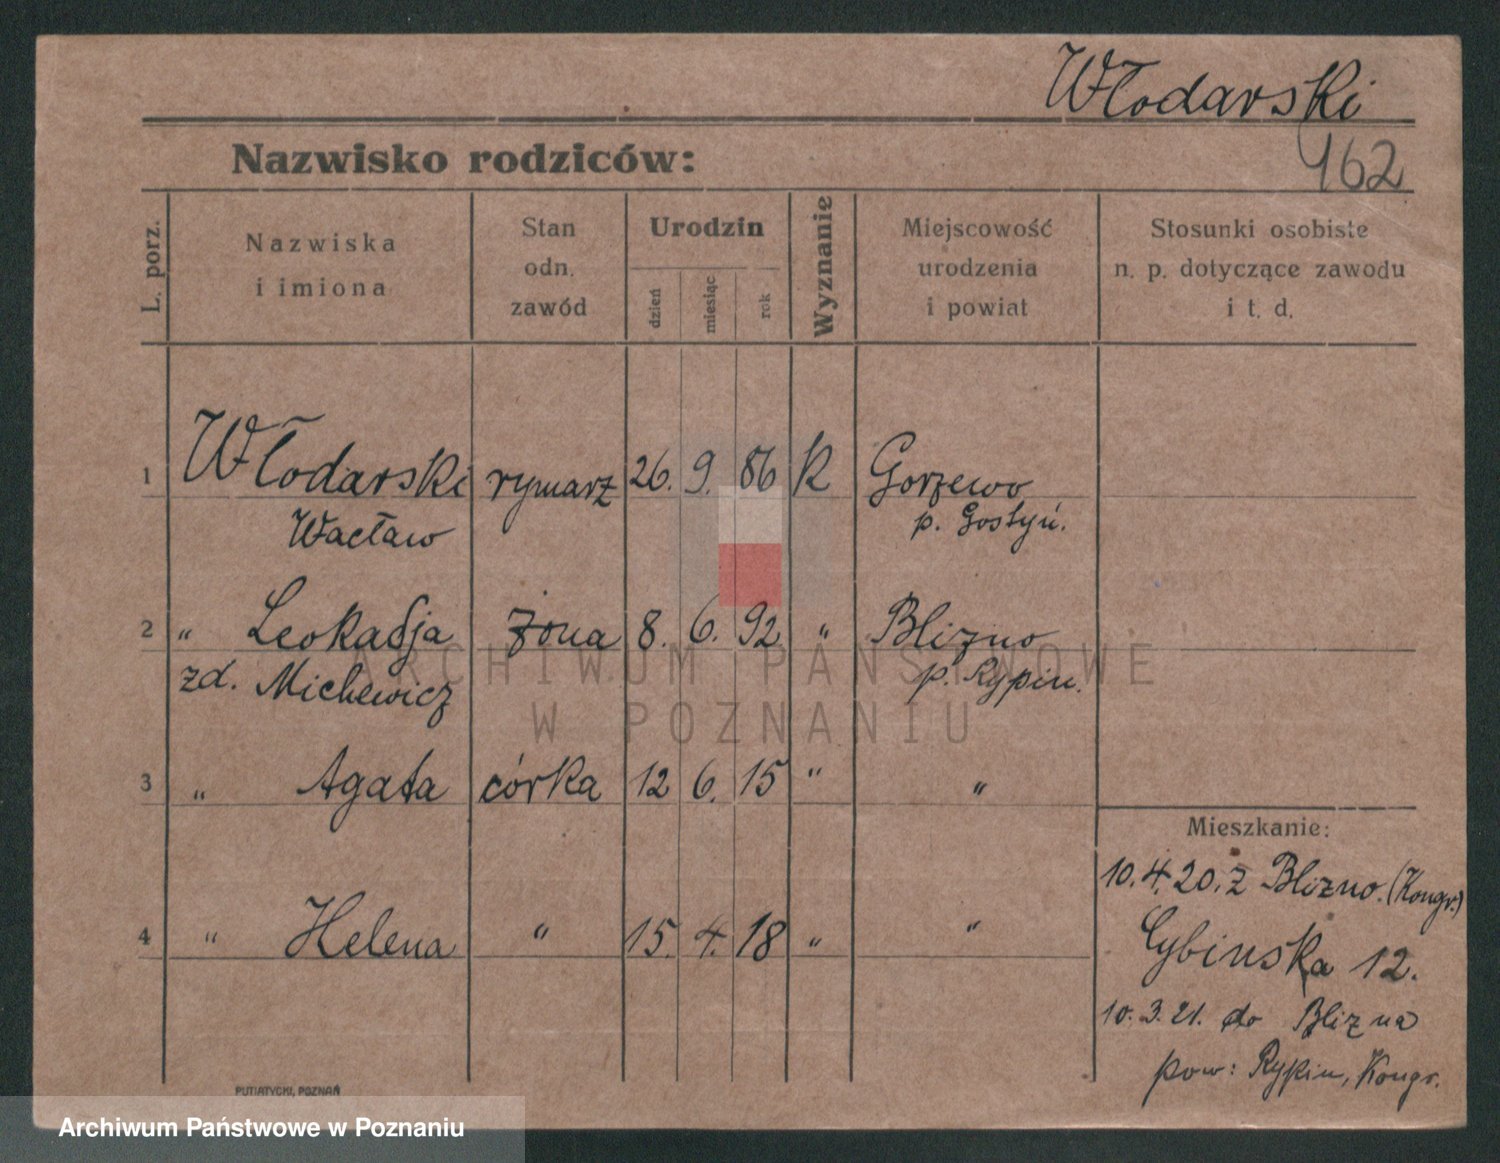 Włodarski
Nazwisko rodziców:
162
L. porz.
Nazwiska
i imiona
Stan
odn.
zawód
Urodzin
dzień
miesiąc
rok
Wyznanie
Miejscowość
urodzenia
i powiat
Stosunki osobiste
n. p. dotyczące zawodu
i t. d.
1 Włodarski rymarz 26. 9. 86 K Gorzewo
Wacław p. Gostyń.
2 " Leokadja żona 8. 6. 92 " Blizno
zd. Michewicz p. Rypin.
ARCHIWUM PAŃSTWOWE
W POZNANIU
3 " Agata córka 12 6. 15 " "
Mieszkanie:
10.4.20. z Blizno. (Kongr.)
4 " Helena " 15. 4. 18 " "
Cybinska 12.
10.3.21. do Blizna
pow: Rypin, Kongr.
PUTIATYCKI, POZNAŃ
Archiwum Państwowe w Poznaniu